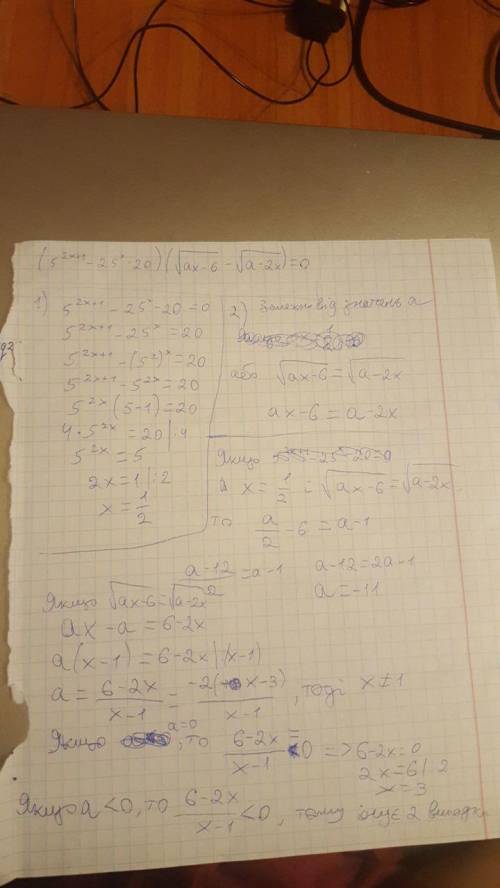 (5^{2x+1} - 25^x - 20)(√(ax-6) - √(a-2x)) = 0
1) 5^{2x+1} - 25^x - 20 = 0
5^{2x+1} - 25^x = 20
5^{2x+1} - (5²)^x = 20
5^{2x+1} - 5^{2x} = 20
5^{2x}(5-1) = 20
4·5^{2x} = 20 | :4
5^{2x} = 5
2x = 1 | :2
x = 1/2
2) Залежно від значень a
або √(ax-6) = √(a-2x)
ax-6 = a-2x
Якщо
x = 1/2 і √(ax-6) = √(a-2x)
то a/2 - 6 = a-1
(a-12)/2 = a-1 a-12 = 2a-1
a = -11
Якщо √(ax-6) = √(a-2x)
ax - a = 6-2x
a(x-1) = 6-2x | /(x-1)
a = (6-2x)/(x-1) = -2(x-3)/(x-1), тоді x ≠ 1
Якщо a=0, то (6-2x)/(x-1) = 0 => 6-2x=0
2x = 6 | 2
x = 3
Якщо a < 0, то (6-2x)/(x-1) < 0, тому існує 2 випадки